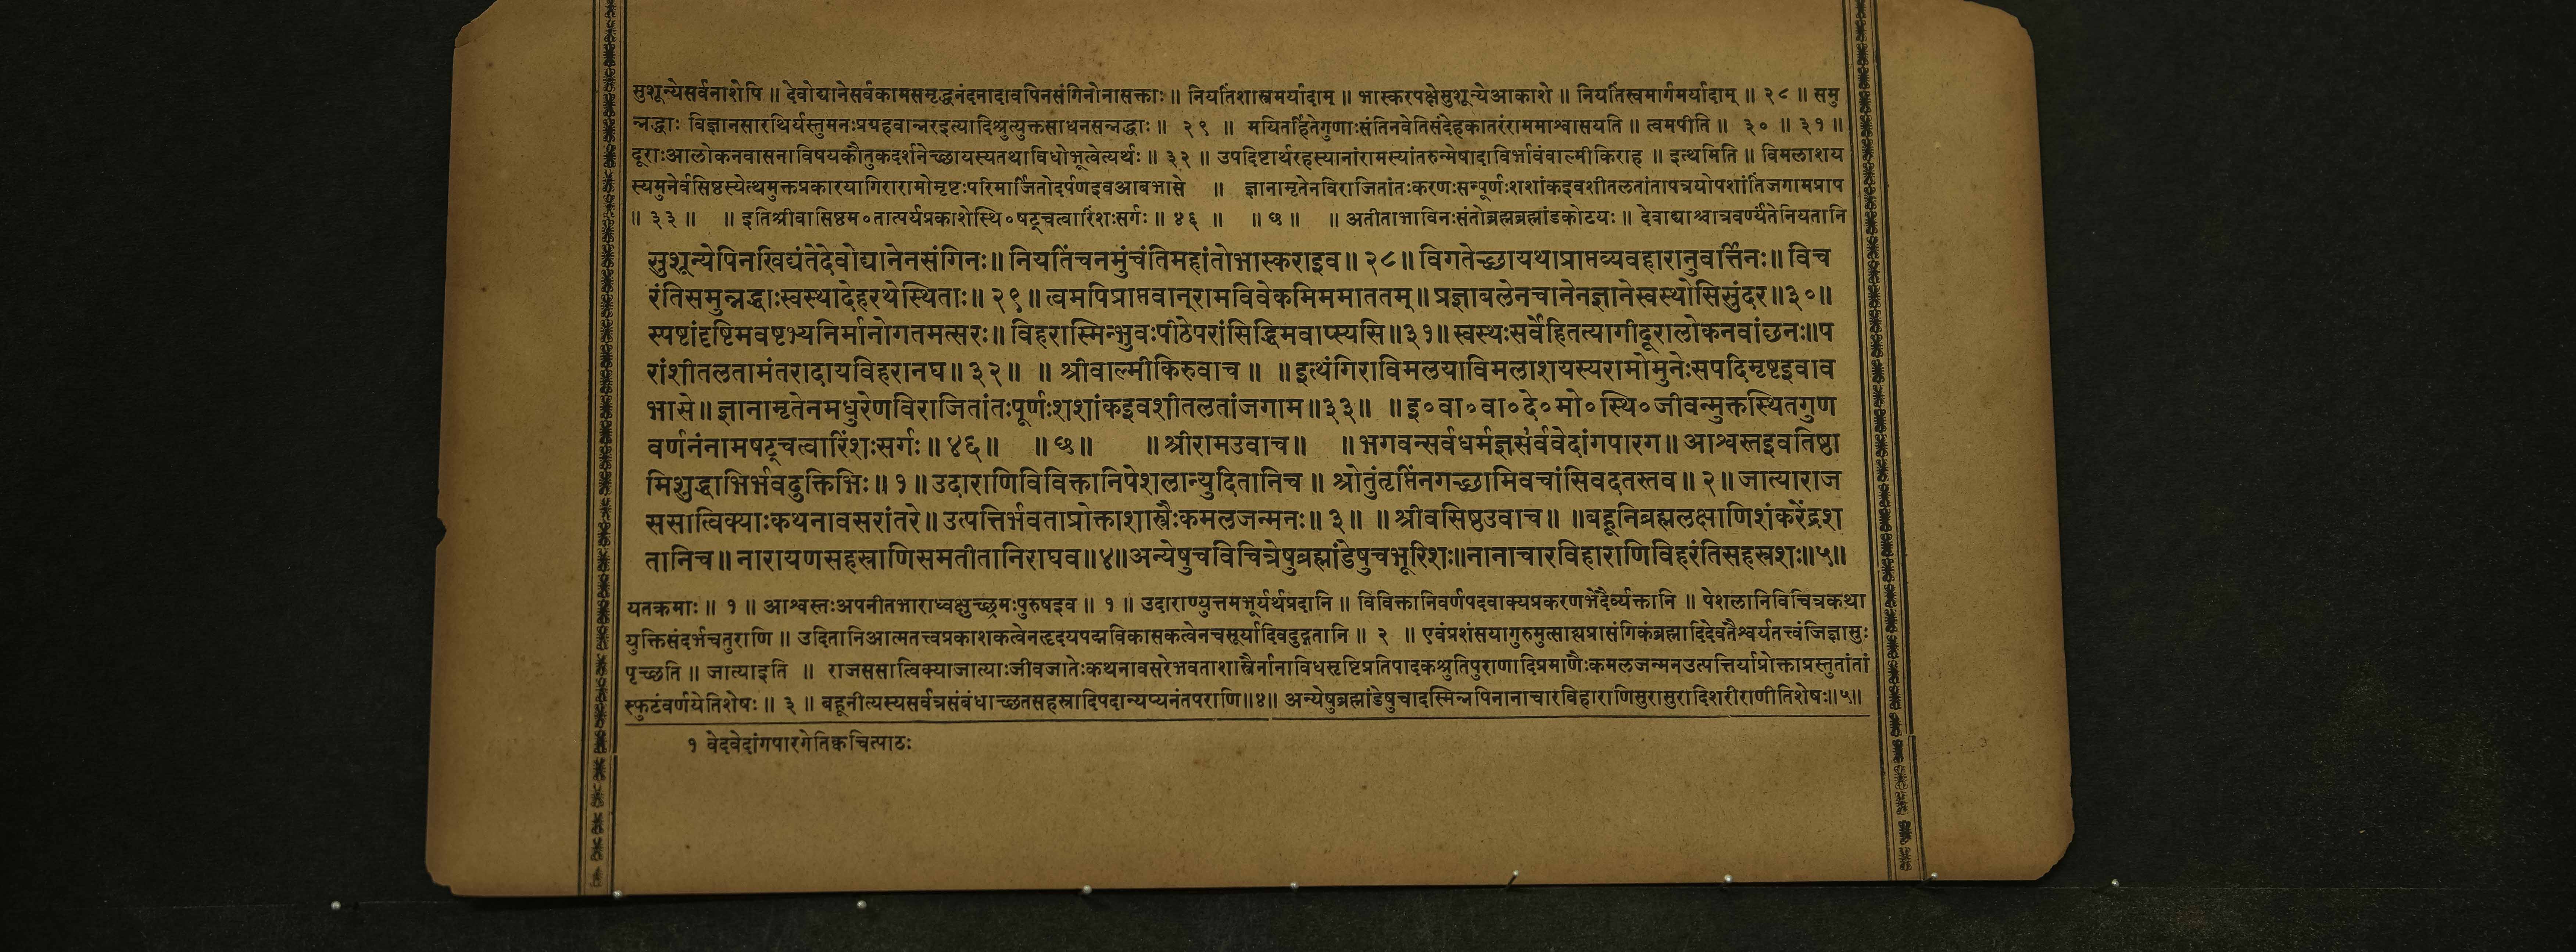 सुशून्येसर्वनाशेपि ॥ देवोद्यानेसर्वकामसमृद्धनंदनादावपिनसंगिनोनासक्ताः ॥ नियतिंशास्त्रमर्यादाम् ॥ भास्करपक्षेसुशून्येआकाशे ॥ नियतिंस्वमार्गमर्यादाम् ॥ २८ ॥ समु
न्नद्धाः विज्ञानसारथिर्यस्तुमनःप्रग्रहवान्नरइत्यादिश्रुत्युक्तसाधनसन्नद्धाः ॥ २९ ॥ मयितर्हितेगुणाःसंतिनवेतिसंदेहकातरंराममाश्वासयति ॥ त्वमपीति ॥ ३० ॥ ३१ ॥
दूराःआलोकनवासनाविषयकौतुकदर्शनेच्छायस्यतथाविधोभूत्वेत्यर्थः ॥ ३२ ॥ उपदिष्टार्थरहस्यानांरामस्यांतरुन्मेषादाविर्भावंवाल्मीकिराह ॥ इत्थमिति ॥ विमलाशय
स्यमुनेर्वसिष्ठस्येत्थमुक्तप्रकारयागिरारामोमृष्टःपरिमार्जितोदर्पणइवआबभासे ॥ ज्ञानामृतेनविराजितांतःकरणःसन्पूर्णःशशांकइवशीतलतांतापत्रयोपशांतिंजगामप्राप
॥ ३३ ॥ ॥ इतिश्रीवासिष्ठम०तात्पर्यप्रकाशेस्थि०षट्चत्वारिंशःसर्गः ॥ ४६ ॥ ॥ ७ ॥ ॥ अतीताभाविनःसंतोब्रह्मब्रह्मांडकोटयः ॥ देवाद्याश्चात्रवर्ण्यंतेनियतानि
सुशून्येपिनखिद्यंतेदेवोद्यानेनसंगिनः॥ नियतिंचनमुंचंतिमहांतोभास्कराइव॥ २८॥ विगतेच्छायथाप्राप्तव्यवहारानुवर्त्तिनः॥ विच
रंतिसमुन्नद्धाःस्वस्थादेहरथेस्थिताः॥ २९॥ त्वमपिप्राप्तवान्रामविवेकमिममाततम्॥ प्रज्ञाबलेनचानेनज्ञानेस्वस्थोसिसुंदर॥३०॥
स्पष्टांदृष्टिमवष्टभ्यनिर्मानोगतमत्सरः॥ विहरास्मिन्भुवःपीठेपरांसिद्धिमवाप्स्यसि॥३१॥ स्वस्थःसर्वेहितत्यागीदूरालोकनवांछनः॥प
रांशीतलतामंतरादायविहरानघ॥ ३२॥ ॥ श्रीवाल्मीकिरुवाच॥ ॥इत्थंगिराविमलयाविमलाशयस्यरामोमुनेःसपदिमृष्टइवाब
भासे॥ ज्ञानामृतेनमधुरेणविराजितांतःपूर्णःशशांकइवशीतलतांजगाम॥३३॥ ॥इ०वा०वा०दे०मो०स्थि०जीवन्मुक्तस्थितगुण
वर्णनंनामषट्चत्वारिंशःसर्गः॥ ४६॥ ॥ ७॥ ॥श्रीरामउवाच॥ ॥भगवन्सर्वधर्मज्ञसर्ववेदांगपारग॥ आश्वस्तइवतिष्ठा
मिशुद्धाभिर्भवदुक्तिभिः॥ १॥ उदाराणिविविक्तानिपेशलान्युदितानिच॥ श्रोतुंतृप्तिंनगच्छामिवचांसिवदतस्तव॥ २॥ जात्याराज
ससात्विक्याःकथनावसरांतरे॥ उत्पत्तिर्भवताप्रोक्ताशास्त्रैःकमलजन्मनः॥ ३॥ ॥श्रीवसिष्ठउवाच॥ ॥बहूनिब्रह्मलक्षाणिशंकरेंद्रश
तानिच॥ नारायणसहस्राणिसमतीतानिराघव॥४॥अन्येषुचविचित्रेषुब्रह्मांडेषुचभूरिशः॥नानाचारविहाराणिविहरंतिसहस्रशः॥५॥
यतक्रमाः ॥ १ ॥ आश्वस्तःअपनीतभाराध्वक्षुच्छ्रमःपुरुषइव ॥ १ ॥ उदाराण्युत्तमभूर्यर्थप्रदानि ॥ विविक्तानिवर्णपदवाक्यप्रकरणभेदैर्व्यक्तानि ॥ पेशलानिविचित्रकथा
युक्तिसंदर्भचतुराणि ॥ उदितानिआत्मतत्त्वप्रकाशकत्वेनहृदयपद्मविकासकत्वेनचसूर्यादिवदुद्गतानि ॥ २ ॥ एवंप्रशंसयागुरुमुत्साह्यप्रासंगिकंब्रह्मादिदेवतैश्वर्यतत्त्वंजिज्ञासुः
पृच्छति ॥ जात्याइति ॥ राजससात्विक्याजात्याःजीवजातेःकथनावसरेभवताशास्त्रैर्नानाविधसृष्टिप्रतिपादकश्रुतिपुराणादिप्रमाणैःकमलजन्मनउत्पत्तिर्याप्रोक्ताप्रस्तुतांतां
स्फुटंवर्णयेतिशेषः ॥ ३ ॥ बहूनीत्यस्यसर्वत्रसंबंधाच्छतसहस्रादिपदान्यप्यनंतपराणि॥४॥ अन्येषुब्रह्मांडेषुचादस्मिन्नपिनानाचारविहाराणिसुरासुरादिशरीराणीतिशेषः॥५॥
१ वेदवेदांगपारगेतिक्वचित्पाठः